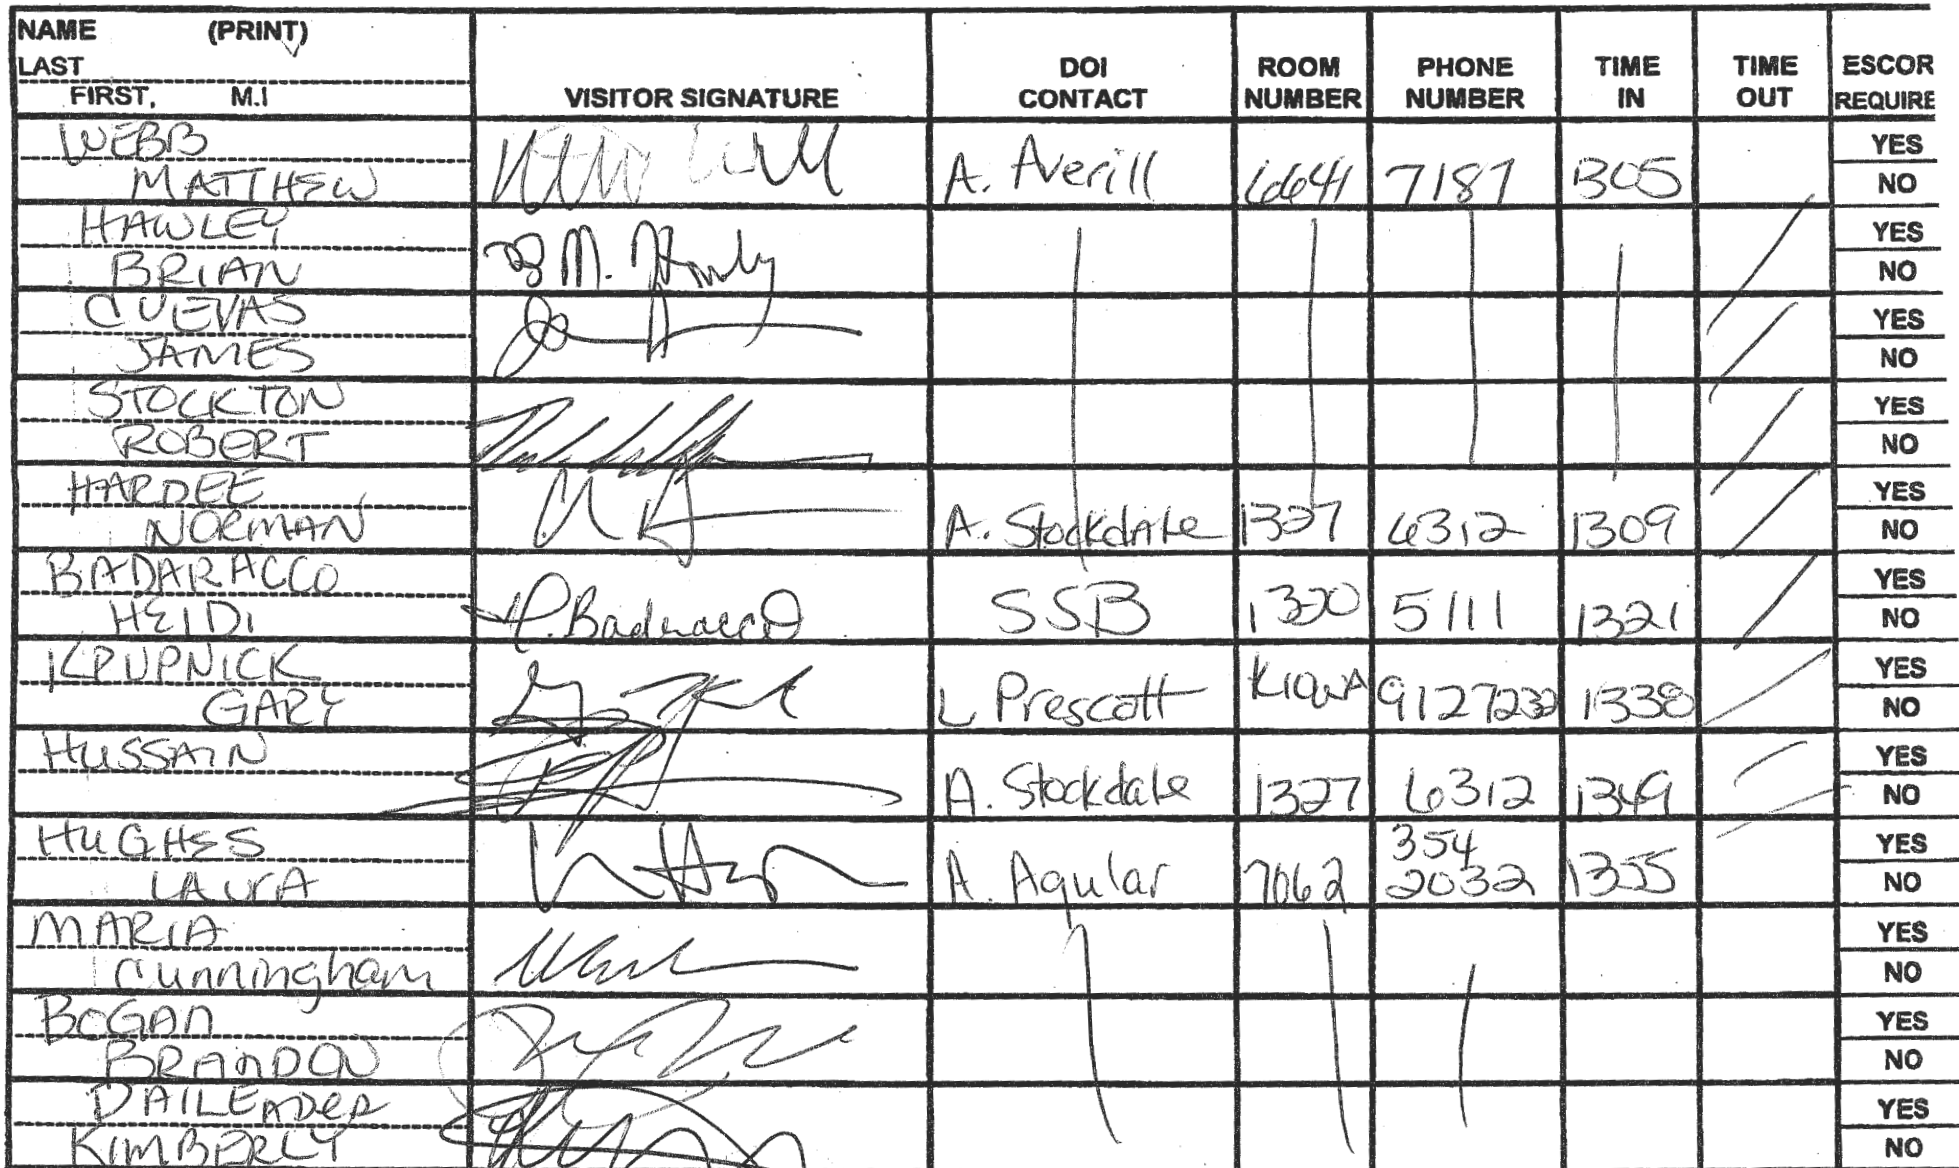 NAME (PRINT)
LAST
FIRST, M.I
VISITOR SIGNATURE
DOI CONTACT
ROOM NUMBER
PHONE NUMBER
TIME IN
TIME OUT
ESCOR REQUIRE
WEBB
MATTHEW
A. Averill 6641 7187 1305
YES
NO
HAWLEY
BRIAN
YES
NO
CUEVAS
JAMES
YES
NO
STOCKTON
ROBERT
YES
NO
HARDEE
NORMAN
A. Stockdale 1327 6312 1309
YES
NO
BADARACCO
HEIDI
H. Badaracco
SSB 1320 5111 1321
YES
NO
KRUPNICK
GARY
L Prescott KIOWA 9127232 1338
YES
NO
HUSSAIN
A. Stockdale 1327 6312 1349
YES
NO
HUGHES
LAURA
A. Aqular 7062 354 2032 1355
YES
NO
MARIA
Cunningham
YES
NO
BOGAN
BRANDON
YES
NO
DAILEADER
KIMBERLY
YES
NO